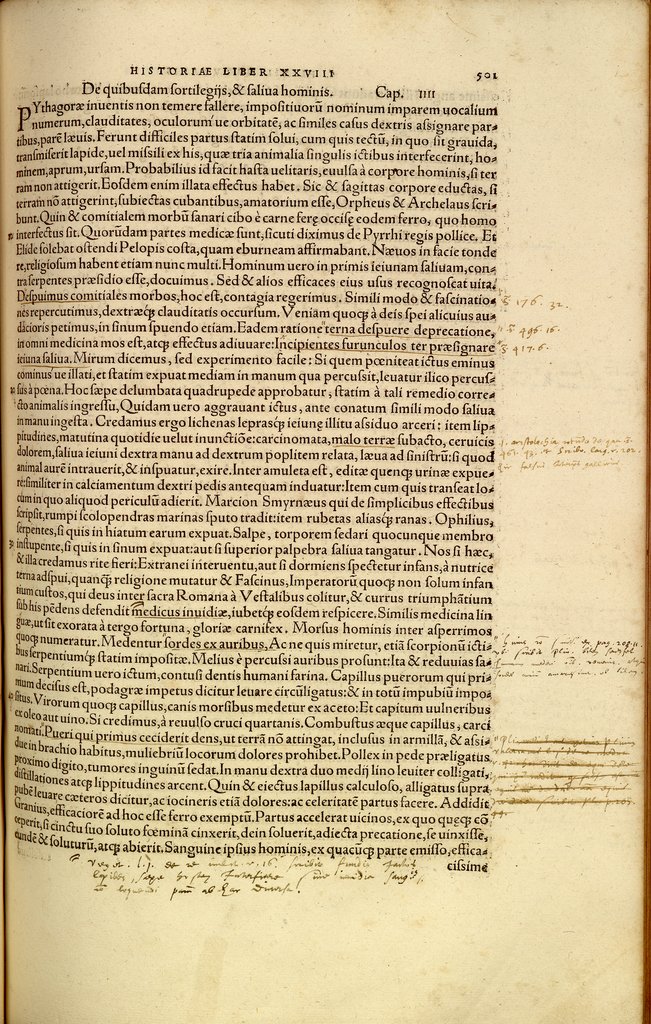 HISTORIAE LIBER XXVIII 501
De quibusdam sortilegijs, & saliua hominis. Cap. IIII
PYthagoræ inuentis non temere fallere, impositiuorū nominum imparem uocalium
numerum, clauditates, oculorum ue orbitatē, ac similes casus dextris assignare par-
tibus, parē læuis. Ferunt difficiles partus statim solui, cum quis tectū, in quo sit grauida,
transmiserit lapide, uel missili ex his, quæ tria animalia singulis ictibus interfecerint, ho-
minem, aprum, ursam. Probabilius id facit hasta uelitaris, euulsa à corpore hominis, si ter
ram non attigerit. Eosdem enim illata effectus habet. Sic & sagittas corpore eductas, si
terram nō attigerint, subiectas cubantibus, amatorium esse, Orpheus & Archelaus scri-
bunt. Quin & comitialem morbū sanari cibo è carne feræ occisę eodem ferro, quo homo
interfectus sit. Quorūdam partes medicæ sunt, sicuti diximus de Pyrrhi regis pollice. Et
Elide solebat ostendi Pelopis costa, quam eburneam affirmabant. Næuos in facie tonde
re, religiosum habent etiam nunc multi. Hominum uero in primis ieiunam saliuam, con-
tra serpentes præsidio esse, docuimus. Sed & alios efficaces eius usus recognoscat uita.
Despuimus comitiales morbos, hoc est, contagia regerimus. Simili modo & fascinatio-
nes repercutimus, dextræq; clauditatis occursum. Veniam quoq; à deis spei alicuius au-
dacioris petimus, in sinum spuendo etiam. Eadem ratione terna despuere deprecatione,
in omni medicina mos est, atq; effectus adiuuare: Incipientes furunculos ter præsignare
ieiuna saliua. Mirum dicemus, sed experimento facile: Si quem pœniteat ictus eminus
cominus ue illati, et statim expuat mediam in manum qua percussit, leuatur ilico percus-
sus à pœna. Hoc sæpe delumbata quadrupede approbatur, statim à tali remedio corre-
cto animalis ingressu. Quidam uero aggrauant ictus, ante conatum simili modo saliua
in manu ingesta. Credamus ergo lichenas leprasq; ieiunę illitu assiduo arceri: item lip-
pitudines, matutina quotidie uelut inunctiōe: carcinomata, malo terræ subacto, ceruicis
dolorem, saliua ieiuni dextra manu ad dextrum poplitem relata, læua ad sinistrū: si quod
animal aurem intrauerit, & inspuatur, exire. Inter amuleta est, editæ quenq; urinæ expue-
re: similiter in calciamentum dextri pedis antequam induatur: Item cum quis transeat lo-
cum in quo aliquod periculū adierit. Marcion Smyrnæus qui de simplicibus effectibus
scripsit, rumpi scolopendras marinas sputo tradit: item rubetas aliasq; ranas. Ophilius,
serpentes, si quis in hiatum earum expuat. Salpe, torporem sedari quocunque membro
instupente, si quis in sinum expuat: aut si superior palpebra saliua tangatur. Nos si hæc,
& illa credamus rite fieri: Extranei interuentu, aut si dormiens spectetur infans, à nutrice
terna adspui, quanq; religione mutatur & Fascinus, Imperatorū quoq; non solum infan
tium custos, qui deus inter sacra Romana à Vestalibus colitur, & currus triumphātium
sub his pēdens defendit medicus inuidiæ, iubetq; eosdem respicere. Similis medicina lin
guæ, ut sit exorata à tergo fortuna, gloriæ carnifex. Morsus hominis inter asperrimos
quoq; numeratur. Medentur sordes ex auribus, Ac ne quis miretur, etiā scorpionū icti-
bus serpentiumq; statim impositæ. Melius è percussi auribus prosunt: Ita & reduuias sa-
nari. Serpentium uero ictum, contusi dentis humani farina. Capillus puerorum qui pri-
mum decisus est, podagræ impetus dicitur leuare circūligatus: & in totū impubiū impo-
situs. Virorum quoq; capillus, canis morsibus medetur ex aceto: Et capitum uulneribus
ex oleo aut uino. Si credimus, à reuulso cruci quartanis. Combustus æque capillus, carci
nomati. Pueri qui primus ceciderit dens, ut terrā nō attingat, inclusus in armillā, & assi-
due in brachio habitus, muliebriū locorum dolores prohibet. Pollex in pede præligatus
proximo digito, tumores inguinū sedat. In manu dextra duo medij lino leuiter colligati,
distillationes atq; lippitudines arcent. Quin & eiectus lapillus calculoso, alligatus supra
pubē leuare cæteros dicitur, ac iocineris etiā dolores: ac celeritatē partus facere. Addidit
Granius, efficaciorē ad hoc esse ferro exemptū. Partus accelerat uicinos, ex quo quęq; cō
ceperit, si cinctu suo soluto fœminā cinxerit, dein soluerit, adiecta precatione, se uinxisse,
eundē & soluturū, atq; abierit. Sanguine ipsius hominis, ex quacūq; parte emisso, effica-
cissime
§ 176. 32.
§ 496. 16.
§ 417. 6.